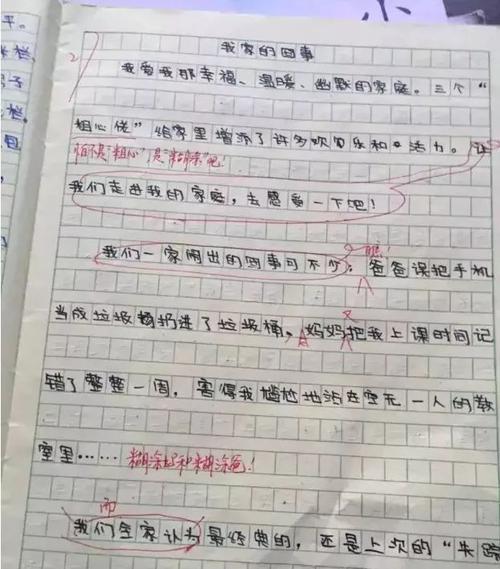 我家的囧事
我爱我那幸福、温暖、幽默的家庭。三个“
粗心佬”给家里增添了许多欢笑乐和活力。让
怕不是“粗心”是“糊涂”吧！
我们走进我的家庭，去感受一下吧！
我们一家闹出的囧事可不少，爸爸误把手机
当成垃圾扔进了垃圾桶，妈妈把我上课时间记
错了整整一周，害得我尴尬地站在空无一人的教
室里……
糊涂妈和糊涂爸！
而
我们全家认为最经典的，还是上次的“失踪